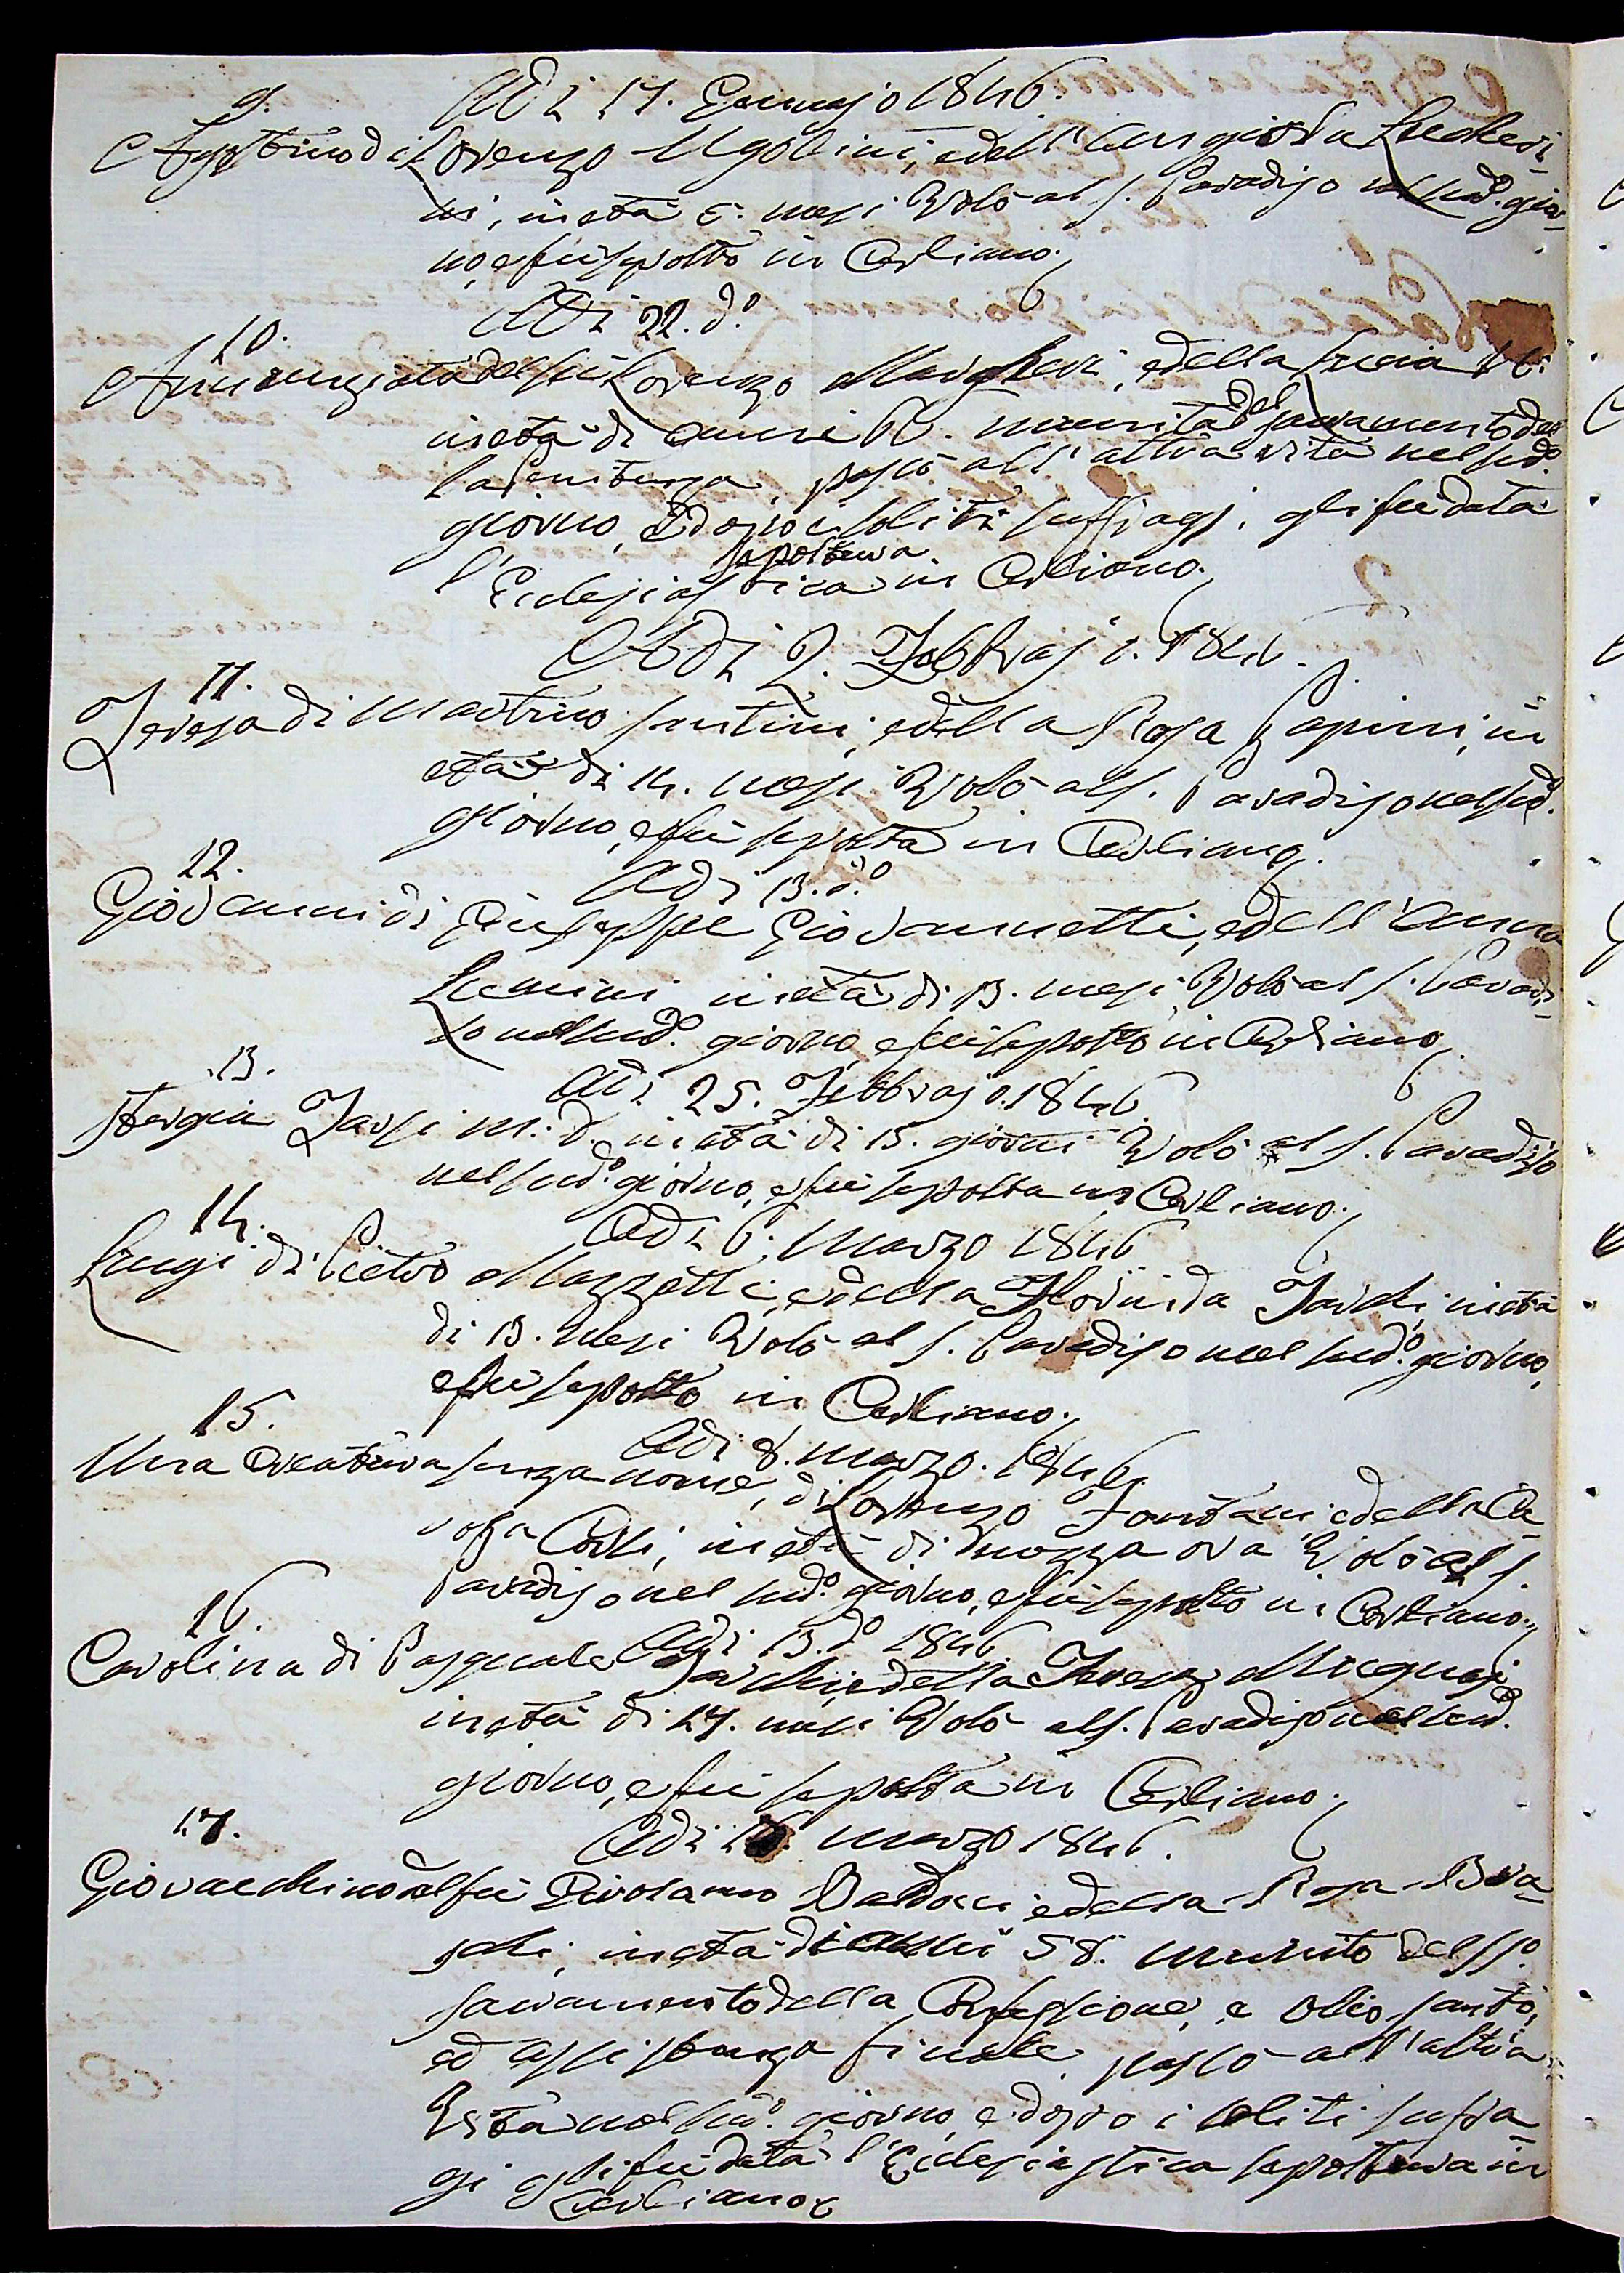 Adi 17. Gennajo 1846.
9.
Agostino di Lorenzo Ugolini, e dell'Angiola Luchesi-
ni, in età 6. mesi Volò al s. Paradiso nel sud.o gior-
no, e fù sepolto in Cerliano.
Adi 22. d.o
10.
Annunziata del fù Lorenzo Margheri, e della Lucia
in età di anni 60. munita del sacramento del-
la Penitenza, passò all'altra vita nel sud.o
giorno, e dopo i soliti suffragj, gli fù data
sepoltura
l'Eclesiastica in Cerliano.
Adi 2. Febbrajo. 1846.
11.
Teresa di Martino Santini, e della Rosa Papini, in
età di 14. mesi Volò al s. Paradiso nel sud.o
giorno, e fù sepolta in Cerliano.
Adi 13. d.o
12.
Giovanni di Giuseppe Giovannetti, e dell'Anna
Lumini in età di 13. mesi Volò al s. Paradi-
so nel sud.o giorno, e fù sepolto in Cerliano.
Adi 25. Febbrajo. 1846.
13.
Stargia Tarsi m: d. in età di 15. giorni Volò al s. Paradiso
nel sud.o giorno, e fù sepolta in Cerliano.
Adi 6. Marzo 1846
14.
Luigi di Pietro Mazzetti, e della Florinda Tarchi, in età
di 13. Mesi Volò al s. Paradiso nel sud.o giorno,
e fù sepolto in Cerliano.
Adi 8. marzo. 1846.
15.
Una Creatura senza nome, di Lorenzo Fontani e della Ca-
rola Corsi, in età di mezza ora Volò al s.
Paradiso nel sud.o giorno, e fù sepolto in Cerliano.
Adi 13. d.o 1846
16.
Carolina di Pasquale Tarchi, e della Teresa Mugnaj,
in età di 17. mesi Volò al s. Paradiso nel sud.o
giorno, e fù sepolta in Cerliano.
Adi marzo 1846.
17.
Giovacchino del fù Girolamo Baldoci e della Rosa Bra-
schi, in età di anni 58. munito del ss.o
sacramento della Confessione, e Olio santo,
ed assistenza finale, passò all'altra
Vita nel sud.o giorno, e dopo i soliti suffra-
gi gli fù data l'Eclesiastica sepoltura in
Cerliano